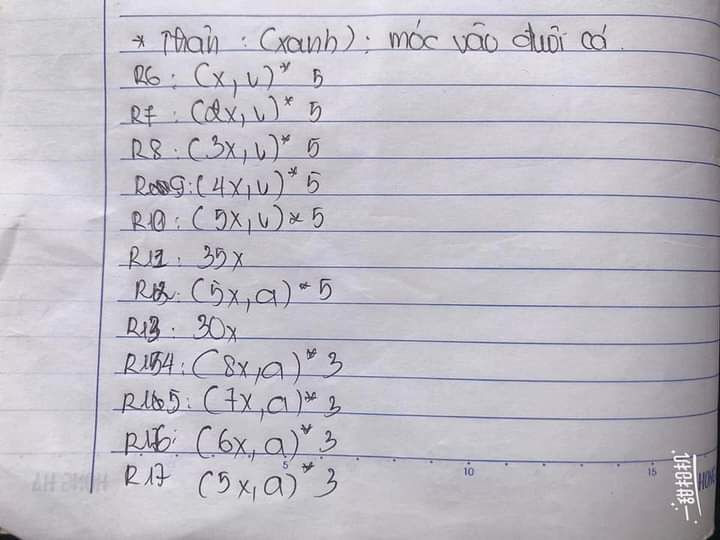 * Thân : (xanh) : móc vào đuôi cá.
R6 : (x, v)* 5
R7 : (2x, v)* 5
R8 : (3x, v)* 5
R9 : (4x, v)* 5
R10 : (5x, v) * 5
R11 : 35x
R12 : (5x, a) * 5
R13 : 30x
R14 : (8x, a)* 3
R15 : (7x, a)* 3
R16 : (6x, a)* 3
R17 (5x, a)* 3
5 10 15
HONG HA HONG